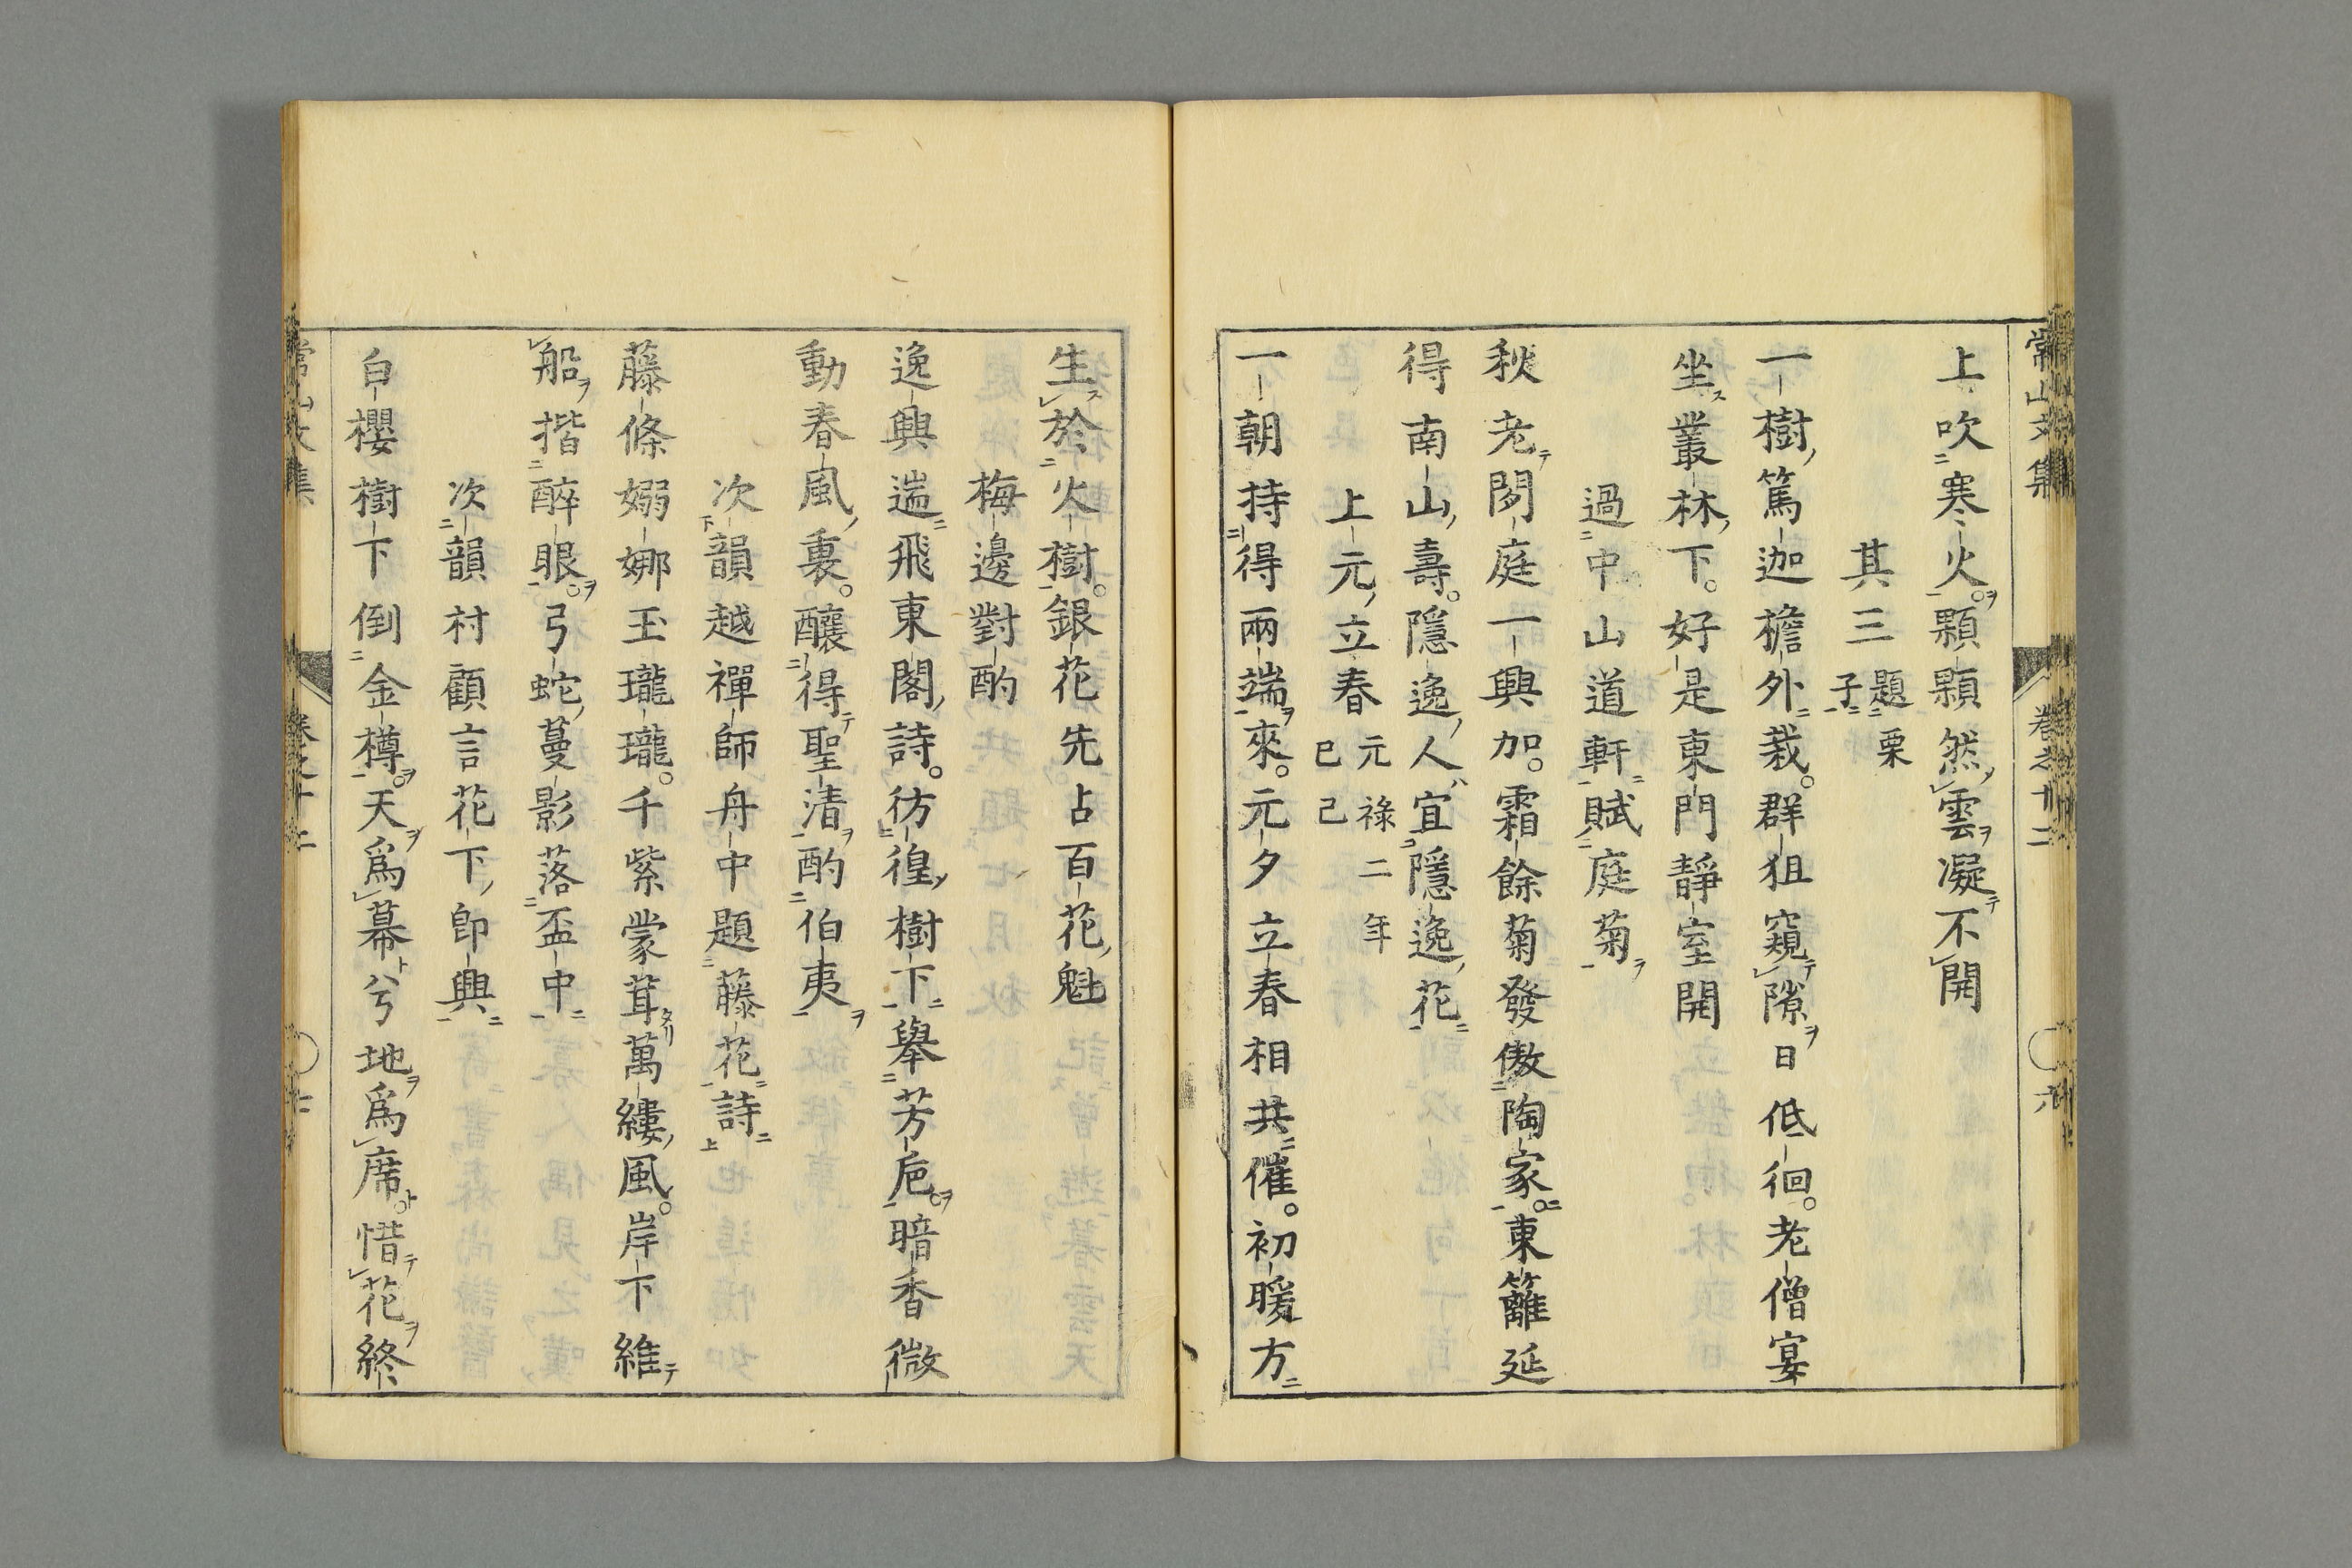 常山文集 卷之十二 〇六
上吹寒火。顆顆然雲凝不開
其三 題栗子
一樹篤迦檐外栽。群狙窺隙日低徊。老僧宴
坐叢林下。好是東門靜室開
過中山道軒賦庭菊
秋老閑庭一興加。霜餘菊發傲陶家。東籬延
得南山壽。隱逸人宜隱逸花
上元立春 元祿二年己巳
一朝持得兩端來。元夕立春相共催。初暖方
生於火樹。銀花先占百花魁
梅邊對酌
逸興遄飛東閣詩。彷徨樹下擧芳巵。暗香微
動春風裏。釀得聖清酌伯夷
次韻越禪師舟中題藤花詩
藤條嫋娜玉瓏瓏。千紫蒙茸萬縷風。岸下維
船揩醉眼。弓蛇蔓影落盃中
次韻村顧言花下卽興
白櫻樹下倒金樽。天爲幕兮地爲席。惜花終
常山文集 卷之十二 〇七